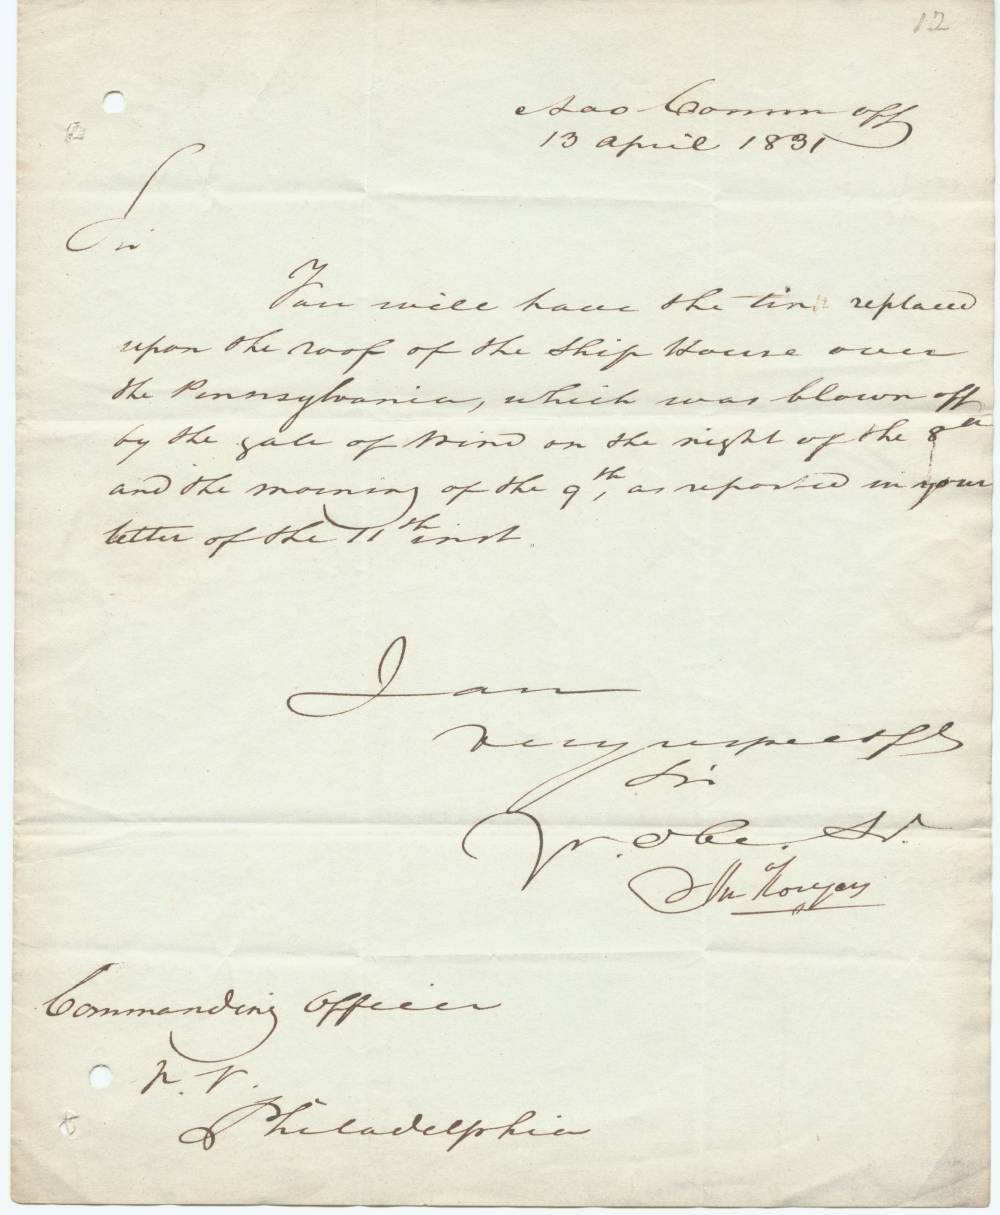 12
Nav Comm off
13 April 1831
Sir
You will have the tin replaced
upon the roof of the Ship House over
the Pennsylvania, which was blown off
by the gale of wind on the night of the 8th
and the morning of the 9th, as reported in your
letter of the 11th inst.
I am
very respectfy
Sir
Yr. Obe. St.
Jn Rodgers
Commanding Officer
N. Y.
Philadelphia